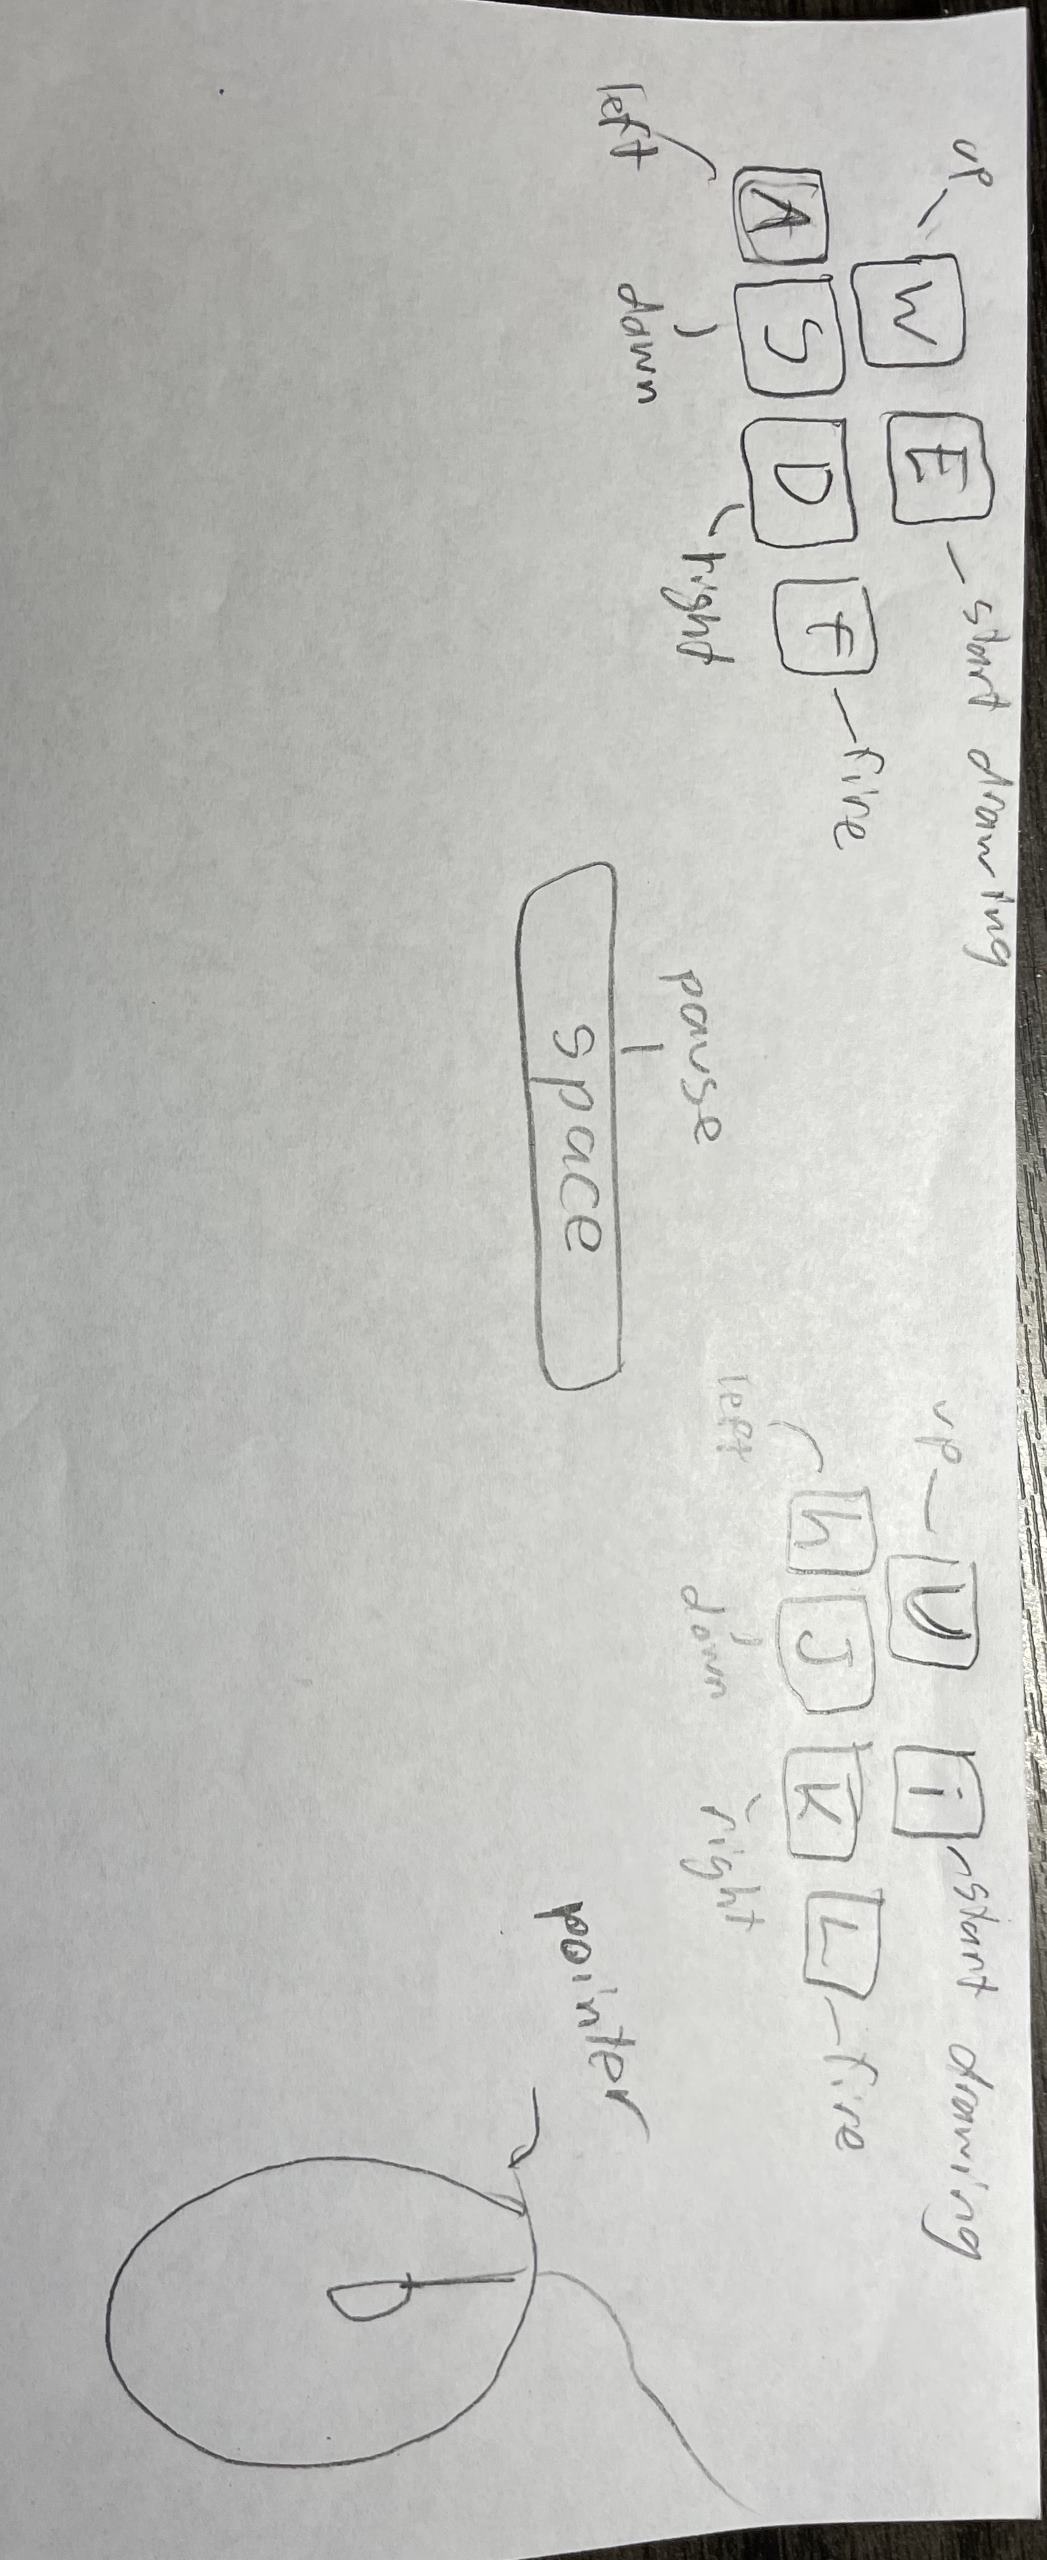 up W E start drawing
A S D F fire
left down right
pause
space
up U i start drawing
h J K L fire
left down right
pointer